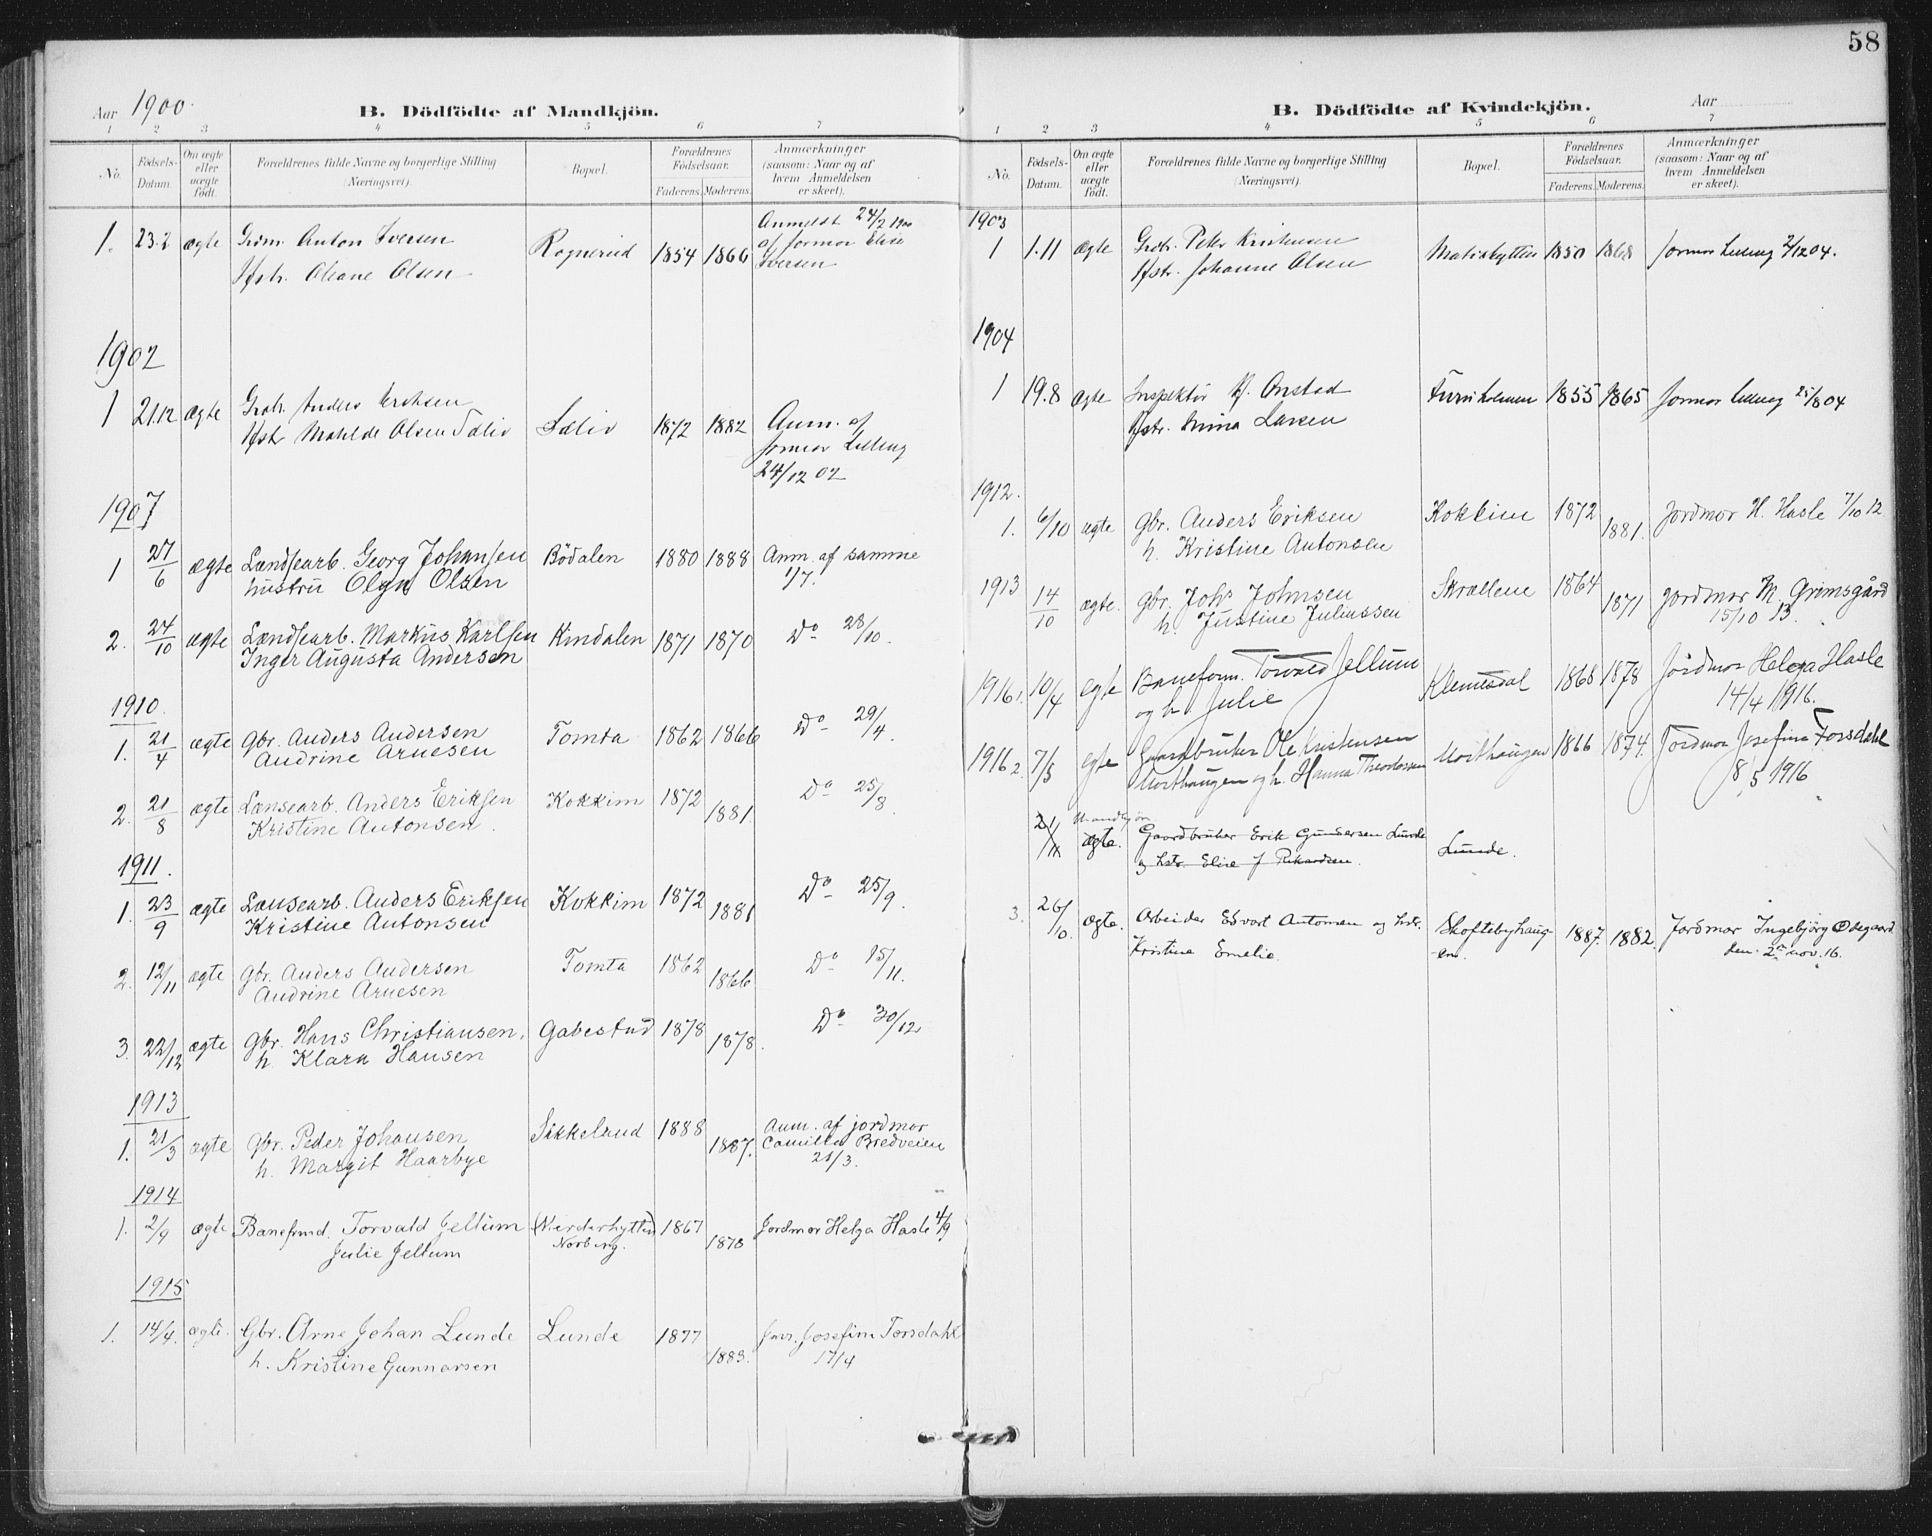 58
Aar 1900.
B. Dödfödte af Mandkjön.
1 2 3 4 5 6 7
No.
Födsels-Datum.
Om ægte eller uægte födt.
Forældrenes fulde Navne og borgerlige Stilling (Næringsvei).
Bopæl.
Forældrenes Födselsaar.
Faderens. Moderens.
Anmærkninger (saasom: Naar og af hvem Anmeldelsen er skeet).
1. 23.2 ægte Grdm. Anton Iversen Rognerud 1854 1866 Anmeldt 24/2 1900
Hstr. Oleane Olsen af jormor Elise
Iversen
1902
1 21.12 ægte Grdbr. Anders Eriksen
Hstr Matilde Olsen Sælid Sælid 1872 1882 Anm. af
jormor Lilleng
24/12 02
1907
1 27/6 ægte Landsearb. Georg Johansen Bödalen 1880 1888 Anm. af samme
hustru Olga Olsen 1/7.
2. 24/10 ægte Landsearb. Markus Karlsen Kindalen 1871 1870 Do 28/10.
Inger Augusta Andersen
1910.
1. 21/4 ægte Gbr. Anders Andersen Tomta 1862 1866 Do 29/4
Andrine Arnesen
2. 21/8 ægte Lansearb. Anders Eriksen Kokkim 1872 1881 Do 25/8.
Kristine Antonsen.
1911.
1. 23/9 ægte Lansearb. Anders Eriksen Kokkim 1872 1881 Do 25/9.
Kristine Antonsen
2. 12/11 ægte Gbr. Anders Andersen Tomta 1862 1866 Do 15/11.
Andrine Arnesen
3. 22/12 ægte Gbr. Hans Christiansen, Gabestad 1878 1878. Do 30/12
h. Klara Hansen
1913
1. 21/3 ægte Gbr. Peder Johansen Sikkeland 1888 1887. Anm. af jordmor
h. Margit Haarbye Camilla Bredveien
21/3.
1914
1. 2/9 ægte Banefmd. Torvald Jellum 1867 1878 Jordmor Helga Hasle 4/9
Julie Jellum Norberg.
1915
1. 14/4. ægte. Gbr. Arne Johan Lunde Lunde 1877 1883. Jmr. Josefine Torsdahl
h. Kristine Gunnarsen 17/4
B. Dödfödte af Kvindekjön.
Aar
1 2 3 4 5 6 7
No.
Födsels-Datum.
Om ægte eller uægte födt.
Forældrenes fulde Navne og borgerlige Stilling (Næringsvei).
Bopæl.
Forældrenes Födselsaar.
Faderens. Moderens.
Anmærkninger (saasom: Naar og af hvem Anmeldelsen er skeet).
1903
1 1.11 ægte Grdbr. Peter Kristensen 1850 1868 jormor Lilleng 2/12 04.
Hstr. Johanne Olsen
1904
1 19.8 ægte Inspektör H. Onstad Furuholmen 1855 1865 jormor Lilleng 25/8 04
Hstr. Anna Larsen
1912.
1. 6/10 ægte Gbr. Anders Eriksen Kokkim 1872 1881. Jordmor H. Hasle 7/10 12
h. Kristine Antonsen
1913 14/10 ægte. Gbr. Johs Johnsen Skrællene 1864 1871 Jordmor M. Grimsgård
h. Justine Juliussen 15/10 13.
1916 1 10/4 egte Baneform. Torvald Jellum Klemesdal 1868 1878 Jordmor Helga Hasle
og h. Julie 14/4 1916.
1916 2. 7/5 egte Gaardbruker Ole Kristensen Morthaugen 1866 1874. Jordmor Josefine Torsdahl
Morthaugen og h. Hanna Theodorsen 8/5 1916
Mandkjön
21/11 ægte. Gaardbruker Erik Gundersen Lunde Lunde.
og hstr. Elise J Rikardsen.
3. 26/10. ægte. Arbeider Edvart Antonsen og hstr. Skoftebyhaug- 1887. 1882 Jordmor Ingebjörg Ödegaard
Kristine Emelie. en. den 2en nov. 16.